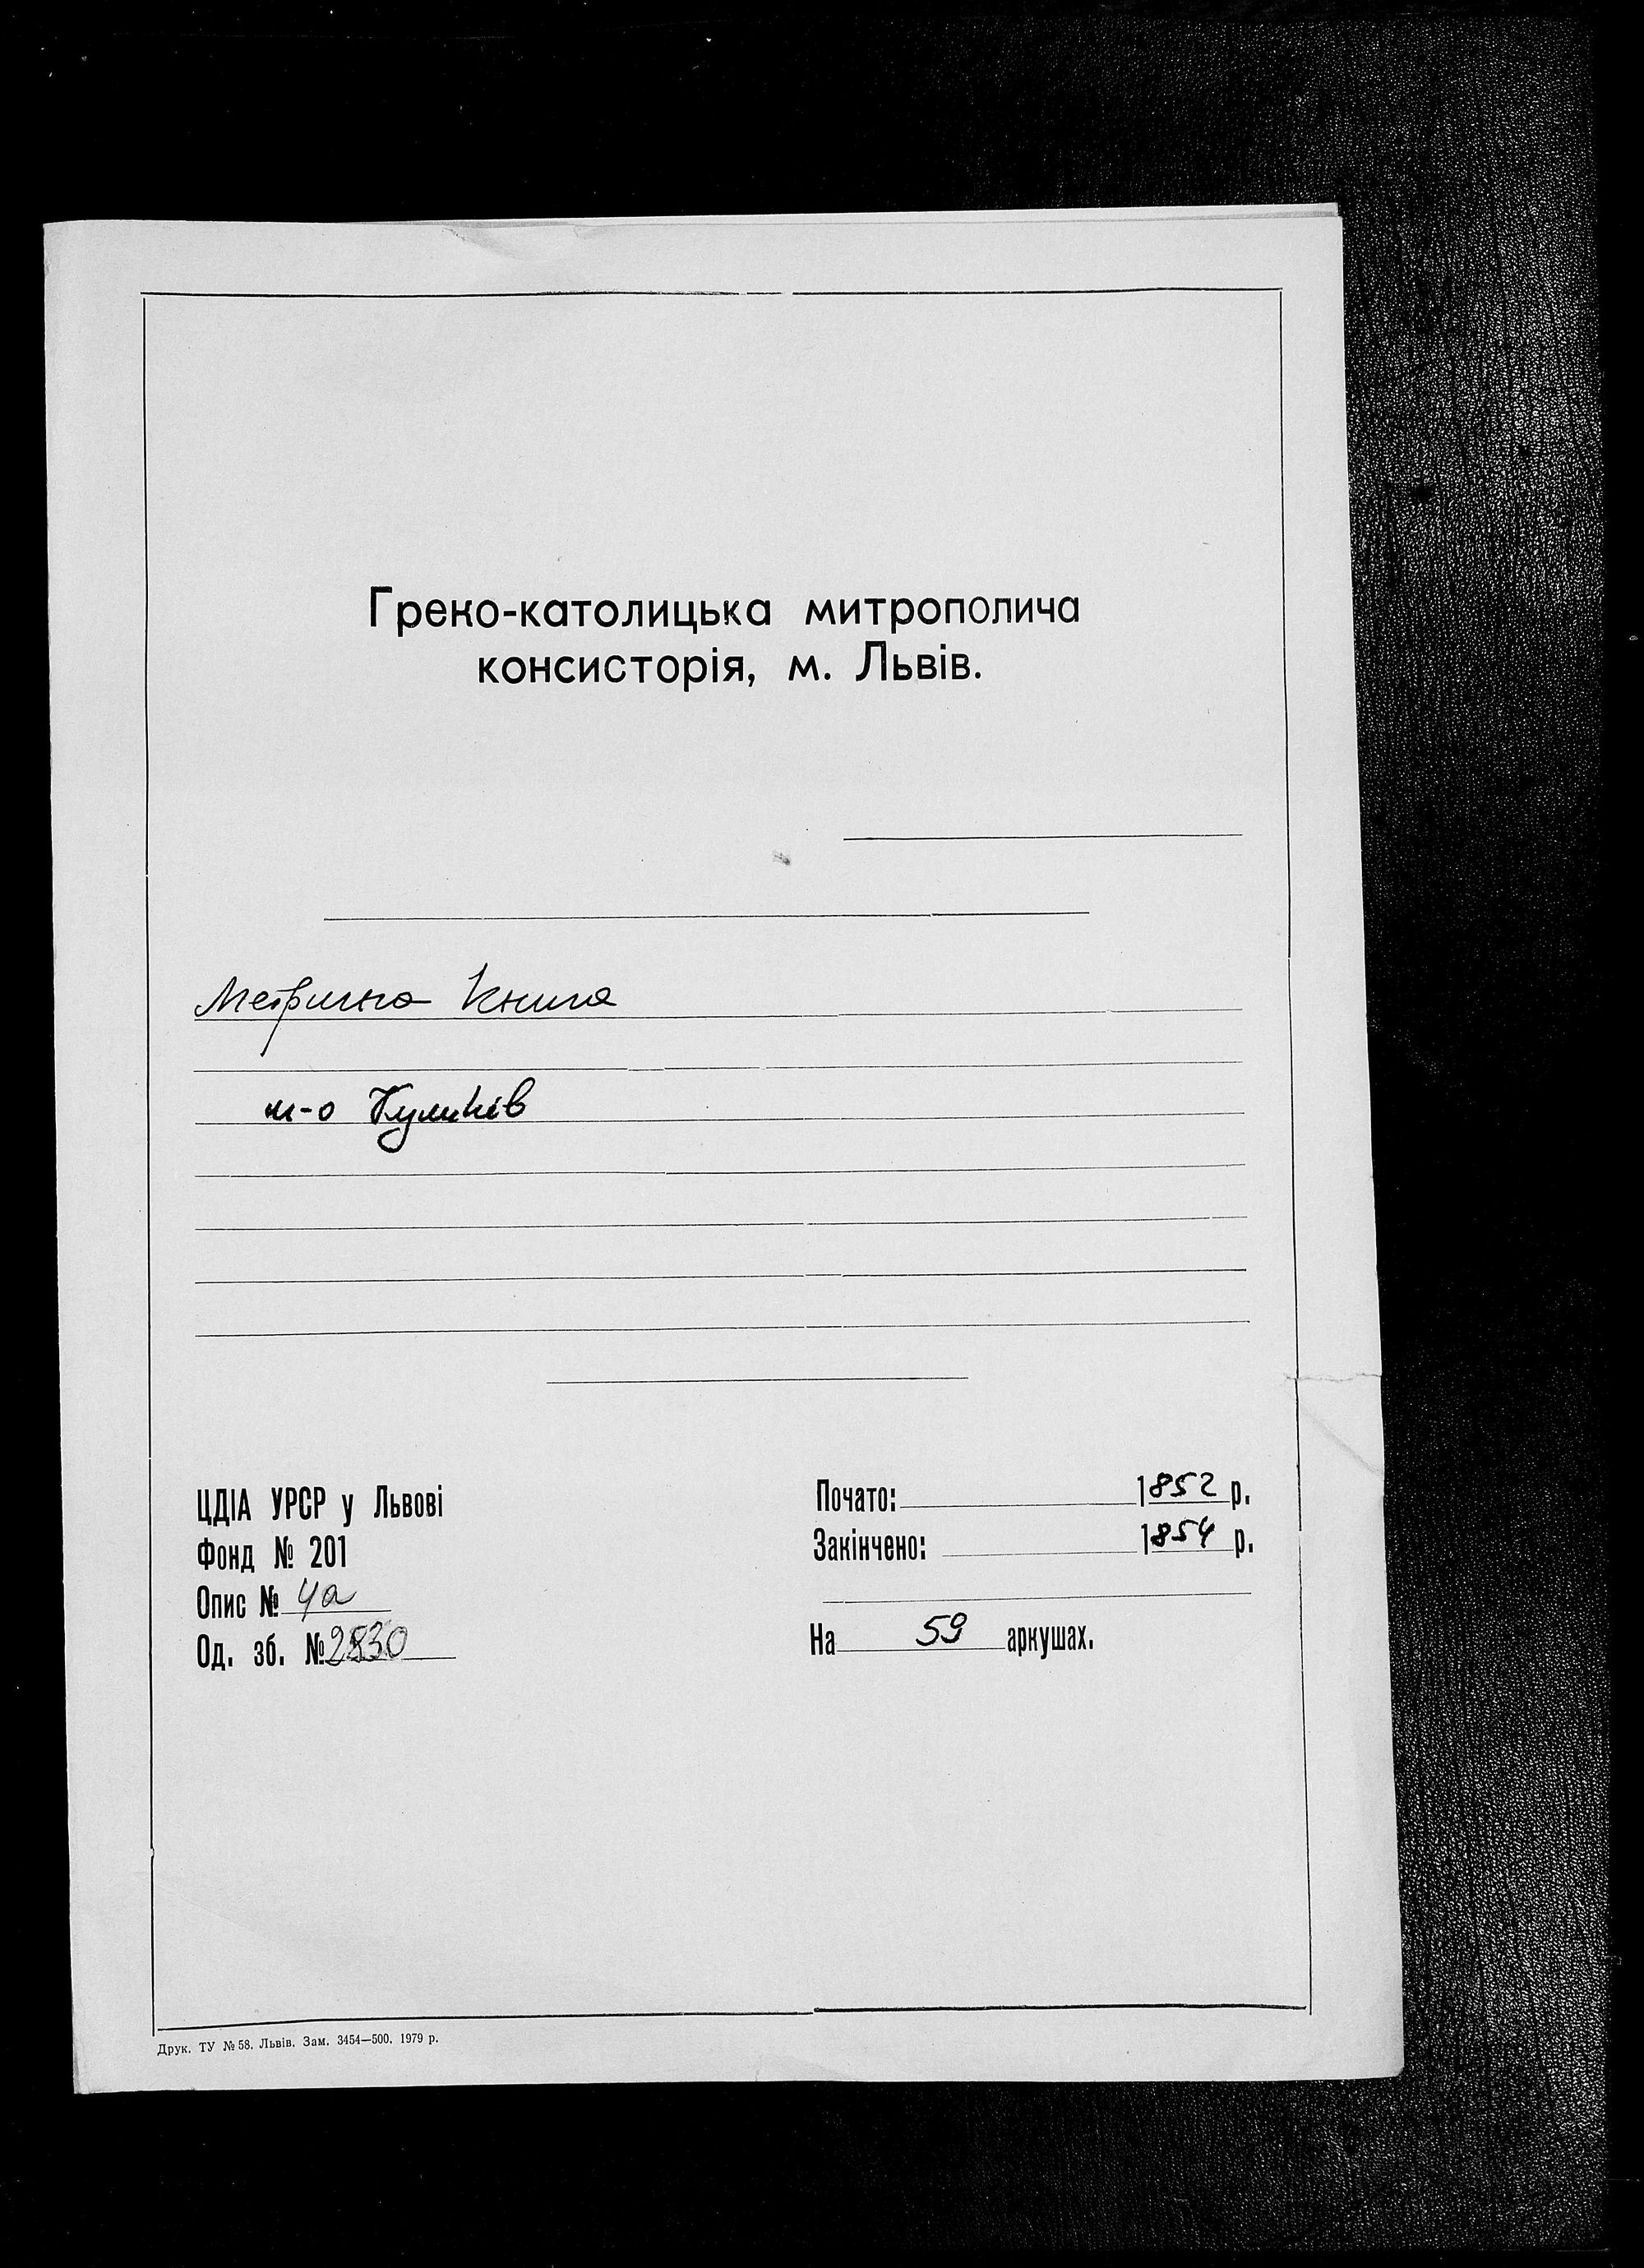 Греко-католицька митрополича
консисторія, м. Львів.
Метрична Книга
м-о Куликів
ЦДІА УРСР у Львові
Фонд № 201
Опис № 4а
Од. зб. № 2830
Почато: 1852 р.
Закінчено: 1854 р.
На 59 аркушах.
Друк. ТУ № 58. Львів. Зам. 3454—500. 1979 р.